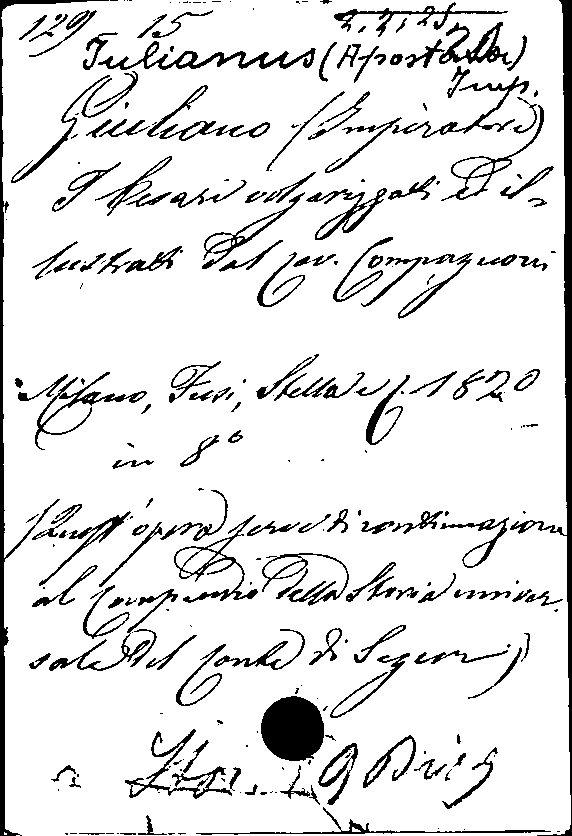 129 15 2.2.25.
Iulianus (Apostata)
Imp.
Giuliano (Imperatore)
I Cesari volgarizzati ed il-
lustrati dal cav. Compagnoni
Milano, Fusi, Stella e C. 1820
in 8°
(Quest' opera serve di continuazione
al Compendio della Storia univer
sale del Conte di Segur)